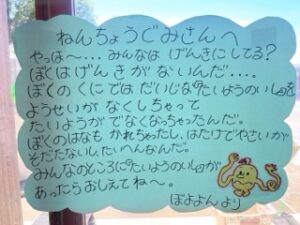 ねんちょうぐみさんへ
やっほ〜・・・みんなは げんきにしてる?
ぼくは げんきが ないんだ・・・。
ぼくの くにでは だいじな"たいようのいし"を
ようせいが なくしちゃって
たいようが でなくなっちゃったんだ。
ぼくのはなも かれちゃったし、はたけでやさいが
そだたないし、たいへんなんだ。
みんなのところに"たいようのいし"が
あったらおしえてね〜。
ぽよよんより